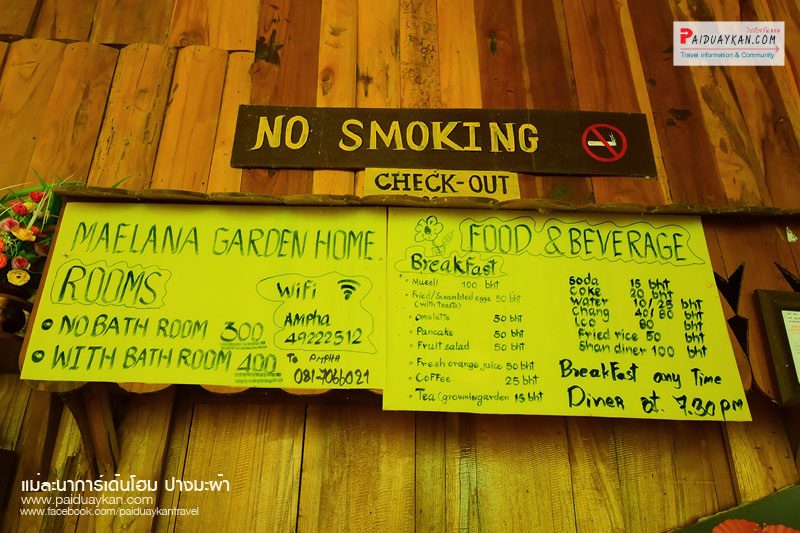 ไปด้วยกัน.คอม
PAIDUAYKAN.COM
Travel information & Community
NO SMOKING
CHECK-OUT
MAELANA GARDEN HOME
ROOMS
NO BATH ROOM 300
WITH BATH ROOM 400
Wifi
AMPHA
49222512
To AMPHA
081-7066021
FOOD & BEVERAGE
Breakfast
Muesli 100 bht
Fried/Scranbled eggs 50 bht
(with toasts)
Omelette 50 bht
Pancake 50 bht
Fruit salad 50 bht
Fresh orange juice 50 bht
Coffee 25 bht
Tea (growningarden 15 bht
Soda 15 bht
Coke 20 bht
Water 10/25 bht
Chang 40/80 bht
Leo 80 bht
Fried rice 50 bht
Shan diner 100 bht
BreakFast any Time
Diner at 7.30 pm
แม่ละนาการ์เด้นโฮม ปางมะผ้า
www.paiduaykan.com
www.facebook.com/paiduaykantravel